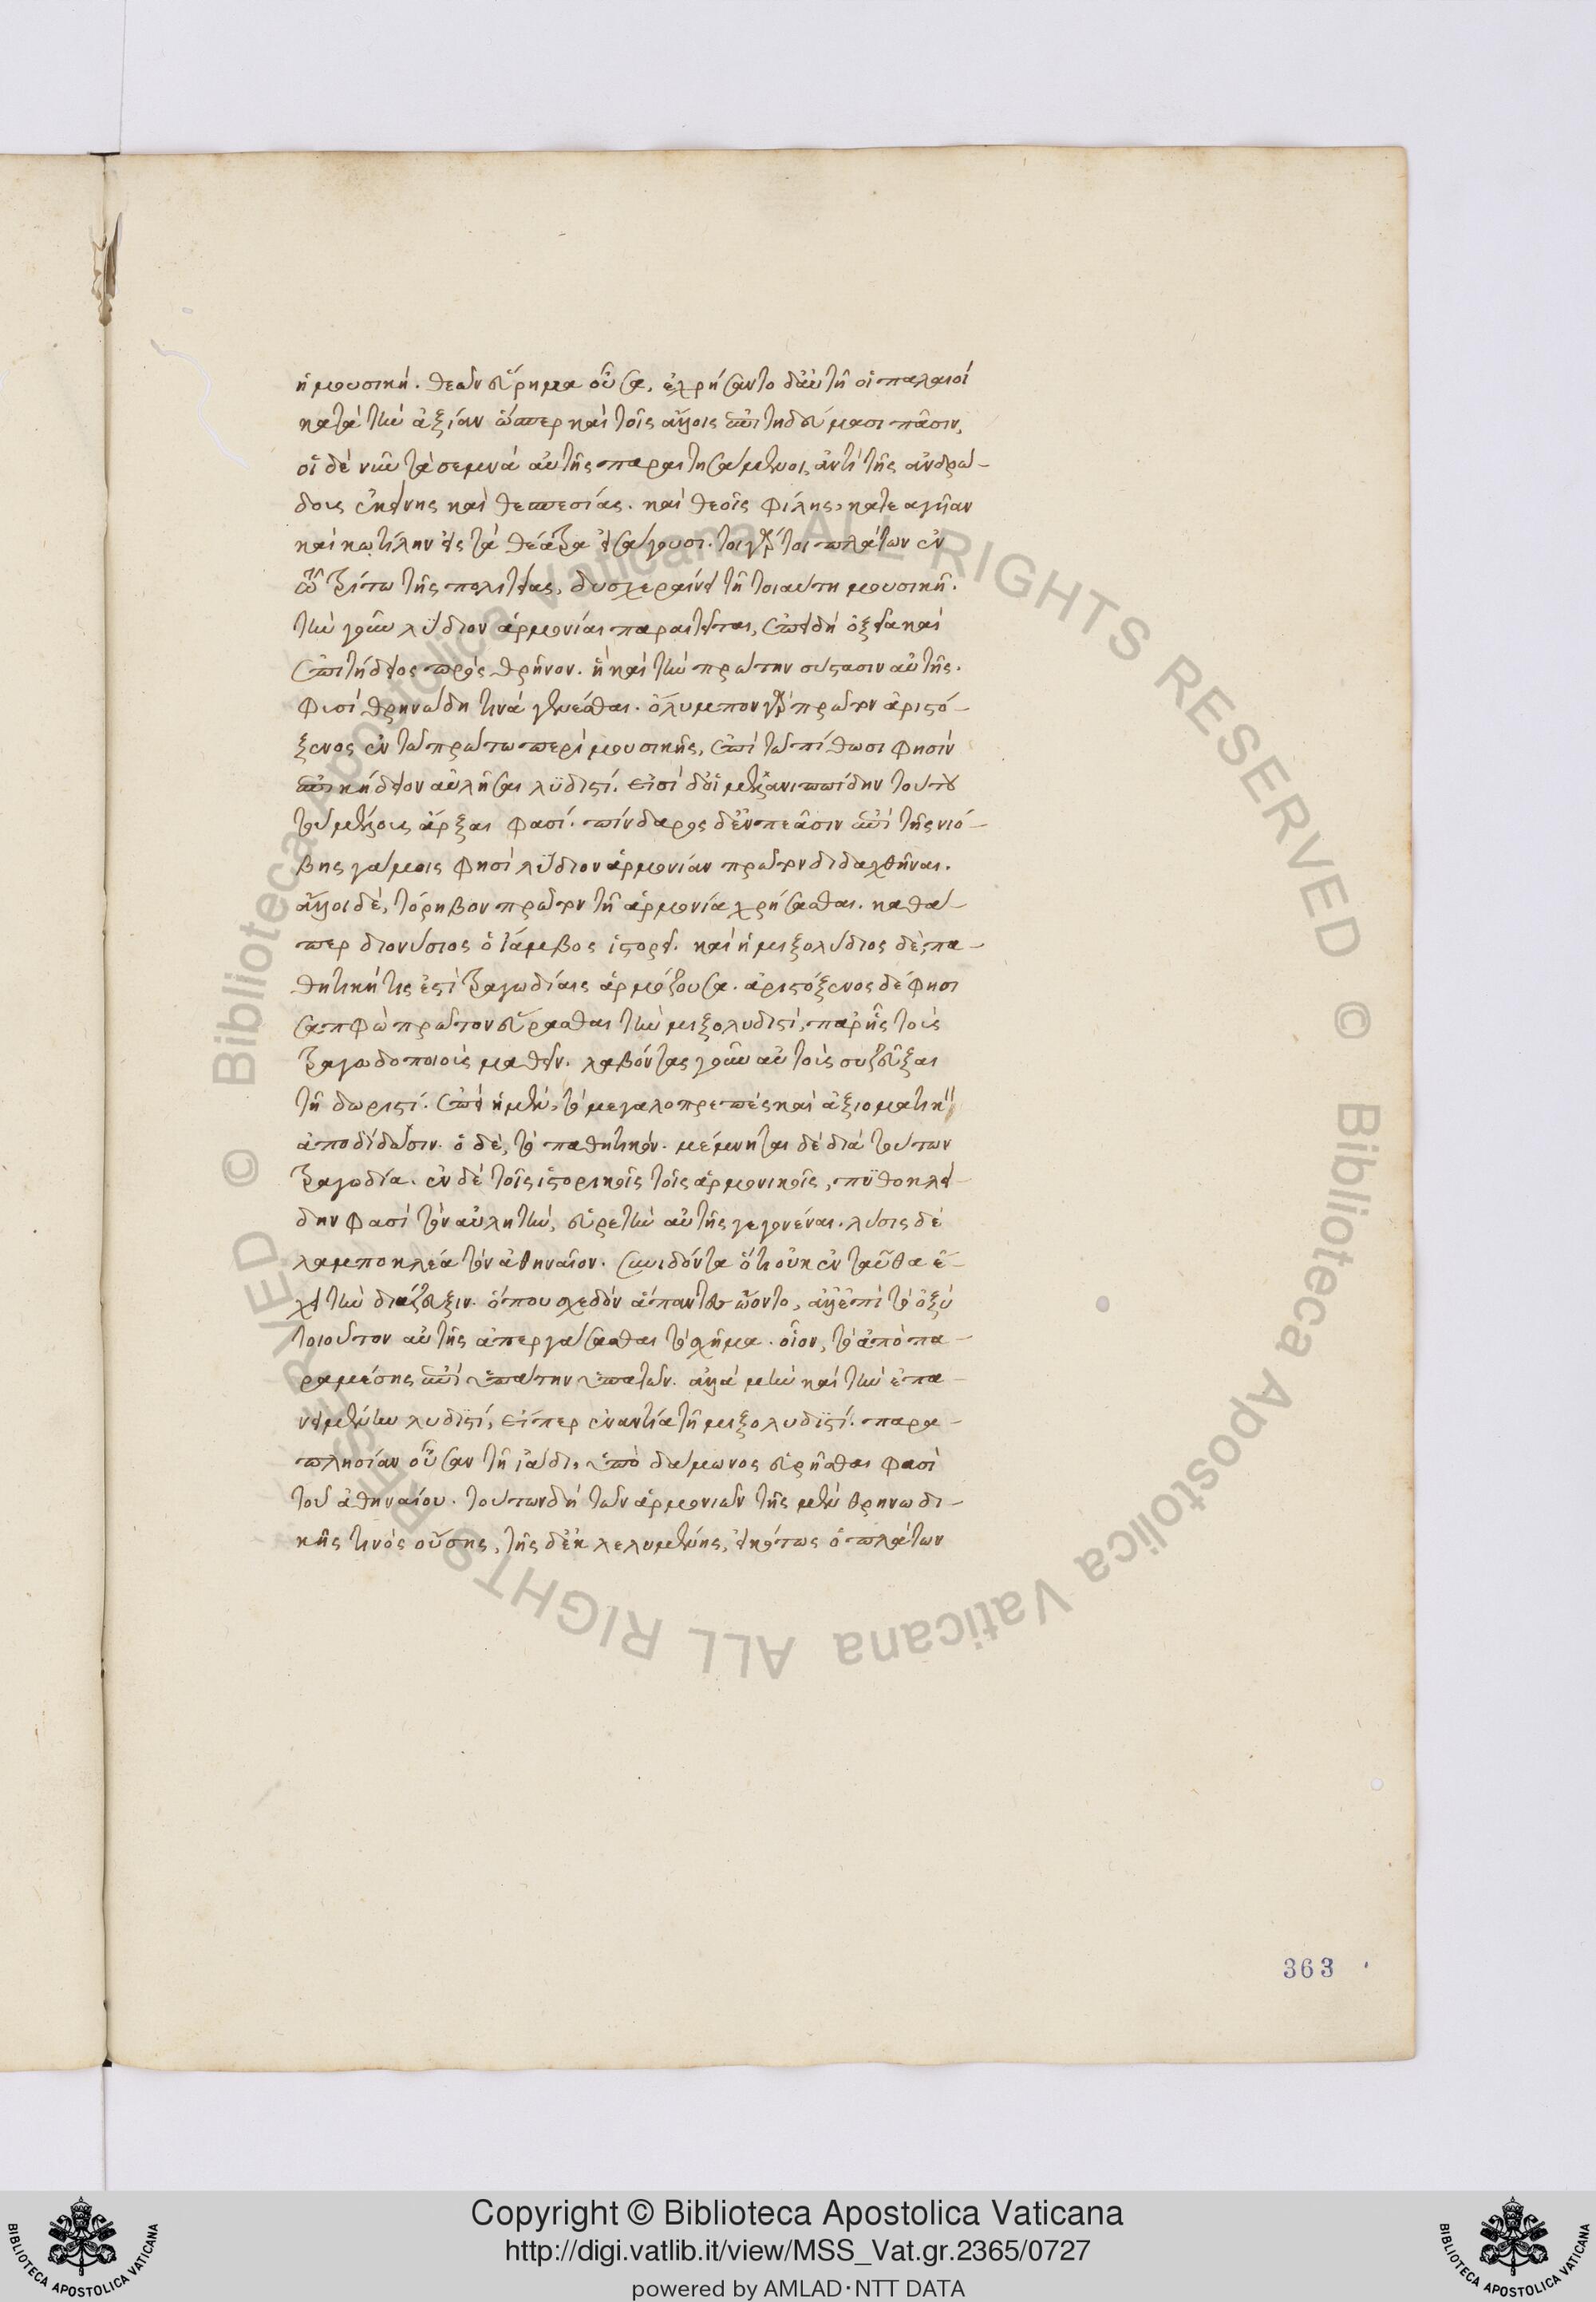 ἡ μουσική. θεῶν εὕρημα οὖσα, ἐχρήσαντο δ' αὐτῇ οἱ παλαιοί
κατὰ τὴν ἀξίαν ὥσπερ καὶ τοῖς ἄλλοις ἐπιτηδεύμασι πᾶσιν,
οἱ δὲ νῦν τὰ σεμνὰ αὐτῆς παραιτησάμενοι, ἀντὶ τῆς ἀνδρώ-
δους ἐκείνης καὶ θεσπεσίας. καὶ θεοῖς φίλης, κατεαγῖαν
καὶ κωτίλην εἰς τὰ θέατρα εἰσάγουσι. τοιγάρτοι πλάτων ἐν
τῷ τρίτῳ τῆς πολιτείας, δυσχεραίνει τῇ τοιαύτη μουσικῇ.
τὴν γοῦν λύδιον ἁρμονίαν παραιτεῖται, ἐπειδὴ ὀξεῖα καὶ
ἐπιτήδειος πρὸς θρῆνον. ᾗ καὶ τὴν πρώτην σύστασιν αὐτῆς.
φισὶ θρηνώδη τινὰ γενέσθαι. ὄλυμπον γὰρ πρῶτον ἀριστό-
ξενος ἐν τῶ πρώτω περὶ μουσικῆς, ἐπὶ τῶ πίθωσι φησὶν
ἐπικήδειον αὐλῆσαι λϋδιστί. εἰσὶ δ' οἳ μελανιππίδην τούτου
τοῦ μέλους ἄρξαι φασί. πίνδαρος δ' ἐν πεᾶσιν ἐπὶ τῆς νιό-
βης γάμοις φησὶ λύδιον ἁρμονίαν πρῶτον διδαχθῆναι.
ἄλλοι δὲ, τόρηβον πρῶτον τῇ ἁρμονία χρήσασθαι. καθά-
περ διονύσιος ὁ ἴαμβος ἱστορεῖ. καὶ ἡ μιξολύδιος δὲ, πα-
θητική τις ἐστὶ τραγωδίαις ἁρμόζουσα. ἀριστόξενος δέ φησι
σαπφὼ πρῶτον εὕρασθαι τὴν μιξολυδιστὶ, παρ' ἧς τοὺς
τραγωδοποιοὺς μαθεῖν. λαβόντας γοῦν αὐτοὺς συζεῦξαι
τῇ δωριστί. ἐπεὶ ἡ μὲν, τὸ μεγαλοπρεπὲς καὶ ἀξιοματικὸν
ἀποδίδωσιν. ὁ δὲ, τὸ παθητικόν. μέμνηται δὲ διὰ τούτων
τραγωδία. ἐν δὲ τοῖς ἱστορικοῖς τοῖς ἁρμονικοῖς, πϋθοκλεί-
δην φασὶ τὸν αὐλητὴν, εὑρετὴν αὐτῆς γεγονέναι. λύσις δὲ
λαμποκλέα τὸν ἀθηναῖον. συνιδόντα ὅτι οὐκ ἐνταῦθα ἔ-
χει τὴν διάζευξιν. ὅπου σχεδὸν ἅπαντες ᾤοντο, ἀλλ' ἐπὶ τὸ ὀξὺ
τοιοῦτον αὐτῆς ἀπεργάσασθαι τὸ σχῆμα. οἷον, τὸ ἀπὸ πα-
ραμέσης ἐπὶ ὑπάτην ὑπατῶν. ἀλλὰ μὴν καὶ τὴν ἐπα-
νειμένην λυδϊστί, εἴπερ ἐναντία τῇ μιξολυδϊστί. παρα-
πλησίαν οὖσαν τῇ ἰάδι, ὑπὸ δάμωνος εὑρῆσθαι φασὶ
τοῦ ἀθηναίου. τούτων δὴ τῶν ἁρμονιῶν τῆς μὲν θρηνωδι-
κῆς τινὸς οὔσης, τῆς δ' ἐκλελυμένης, εἰκότως ὁ πλάτων
363
Copyright © Biblioteca Apostolica Vaticana
http://digi.vatlib.it/view/MSS_Vat.gr.2365/0727
powered by AMLAD·NTT DATA